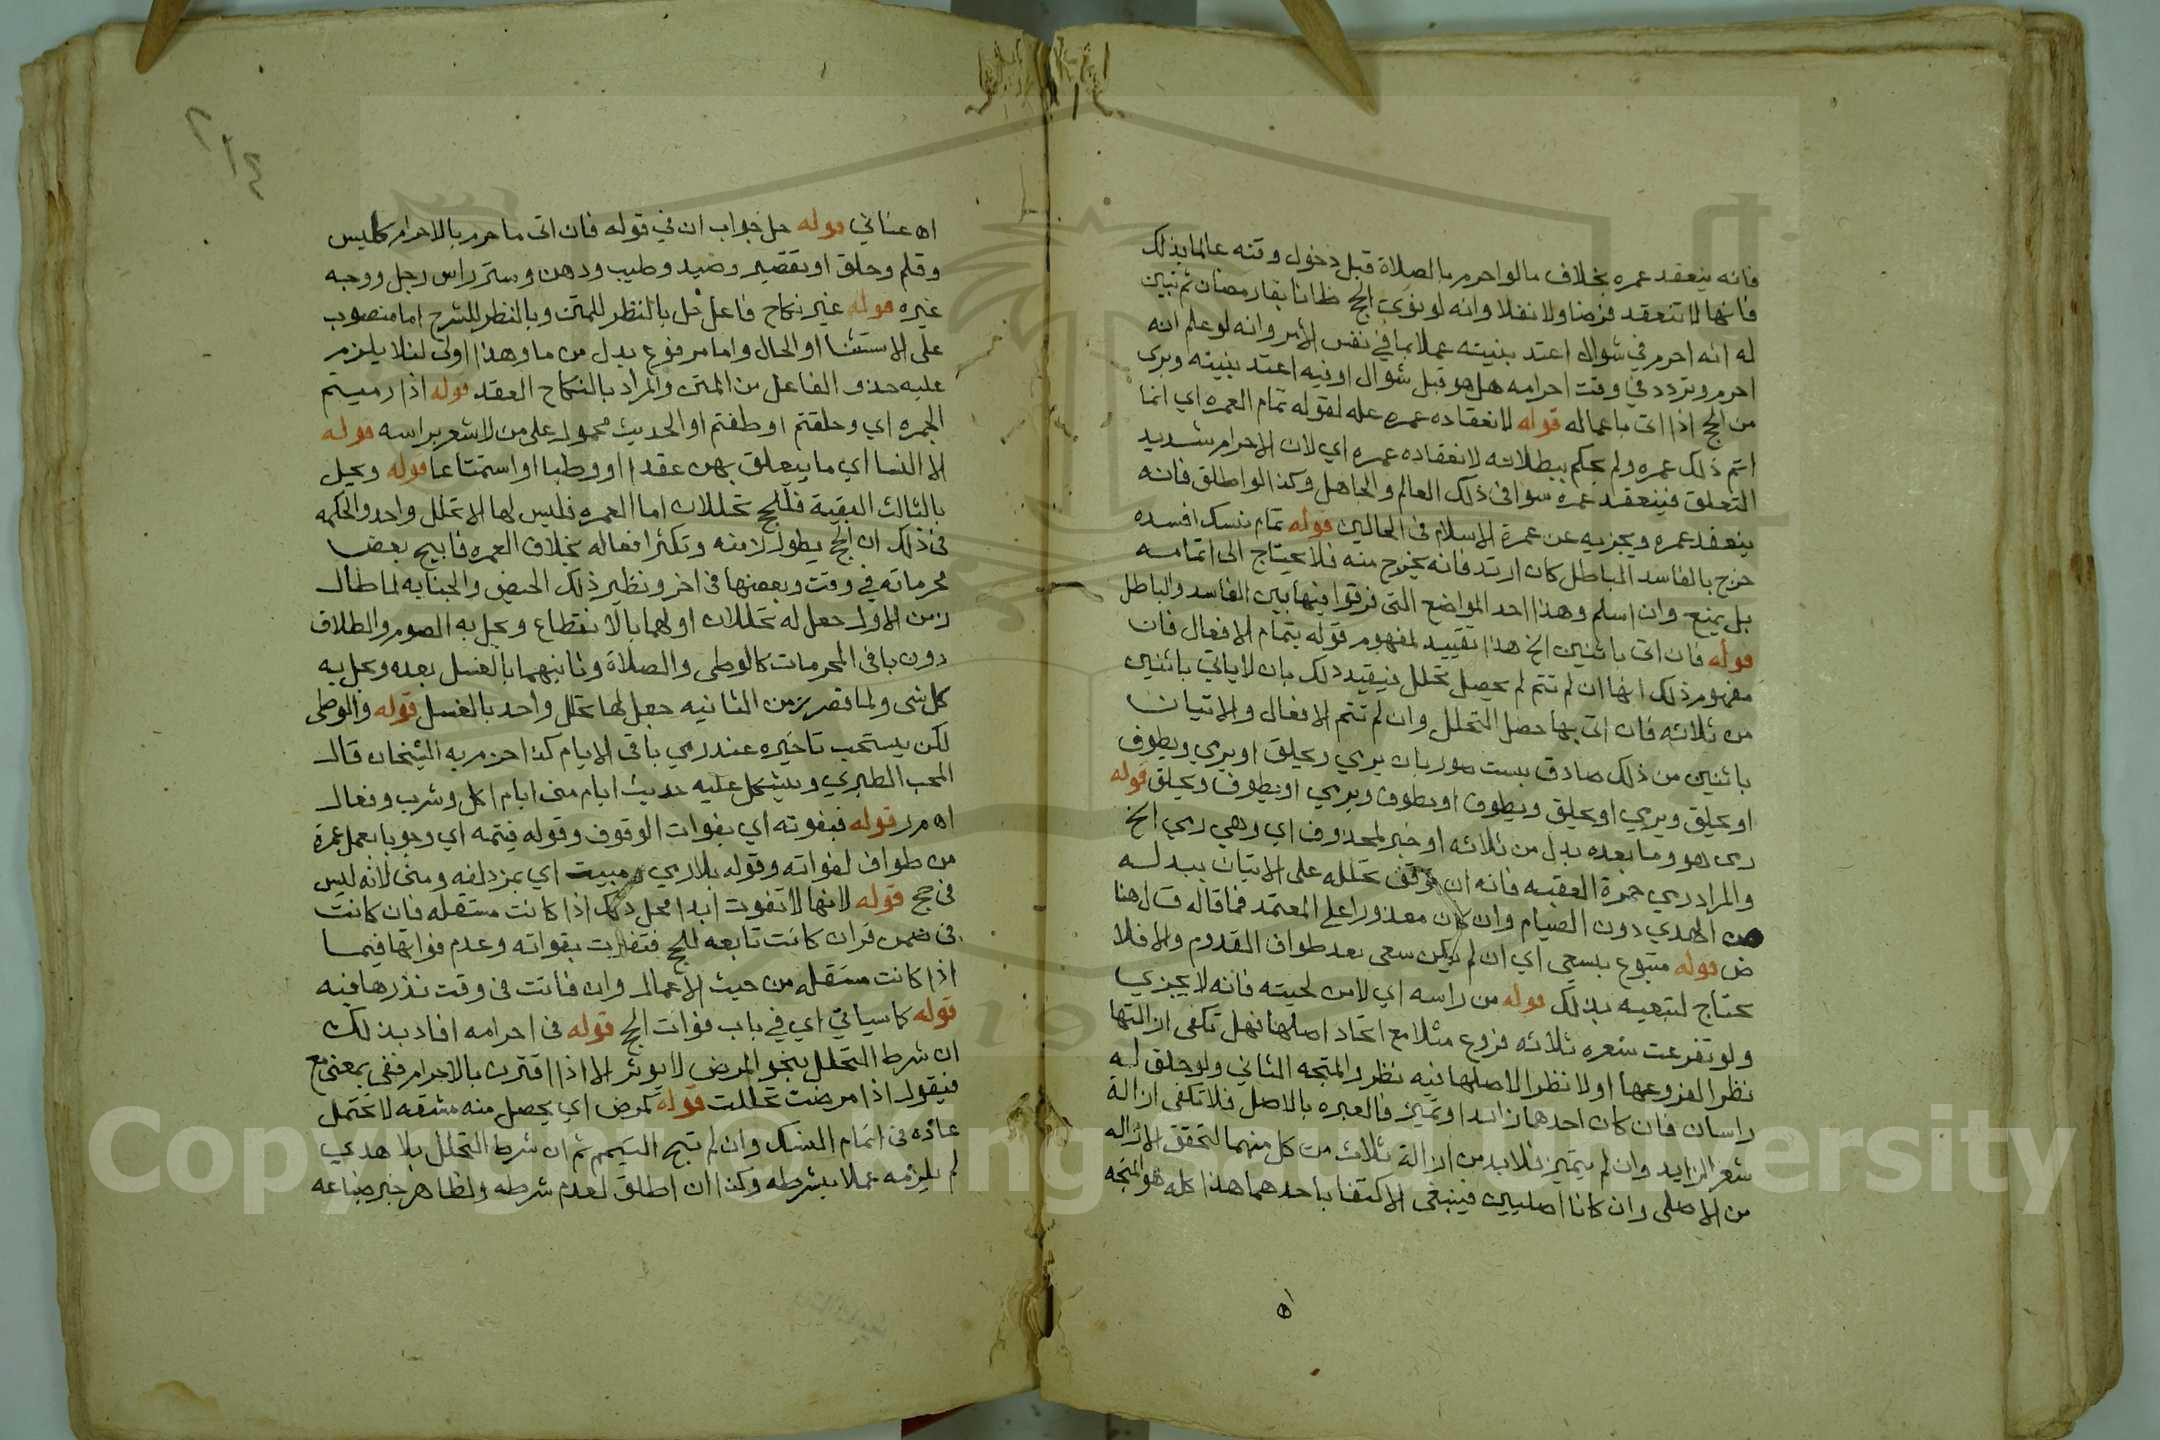 فانه ينعقد عمره بخلاف ما لو احرم بالصلاة قبل دخول وقته عالما بذلك
فانها لا تنعقد فرضا ولا نفلا وانه لو نوى الحج ظانا بقا رمضان ثم تبين
له انه احرم في شوال اعتد بنيته عملا بما في نفس الامر وانه لو علم انه
احرم وتردد في وقت احرامه هل هو قبل شوال او فيه اعتد بنيته وبرى
من الحج اذا اتى باعماله قوله لانعقاده عمره عله لقوله تمام العمره اي انما
اتم ذلك عمره ولم يحكم ببطلانه لانعقاده عمره اي لان الاحرام شديد
التعلق فينعقد عمره سوا في ذلك العالم والجاهل وكذا لو اطلق فانه
ينعقد عمره ويجزيه عن عمرة الاسلام في الحالين قوله تمام نسك افسده
خرج بالفاسد الباطل كان ارتد فانه يخرج منه فلا يحتاج الى اتمامه
بل يمنع وان اسلم وهذا احد المواضع التي فرقوا فيها بين الفاسد والباطل
قوله فان اتى باثنين الخ هذا تقييد لمفهوم قوله بتمام الافعال فان
مفهوم ذلك انها ان لم تتم لم يحصل تحلل فيقيد ذلك بان لا ياتي باثنين
من ثلاثه فان اتى بها حصل التحلل وان لم تتم الافعال والاتيان
باثنين من ذلك صادق بست صور بان يرمي ويحلق او يرمي ويطوف
او يحلق ويرمي او يحلق ويطوف او يطوف ويرمي او يطوف ويحلق قوله
رمى هو وما بعده بدل من ثلاثه او خبر لمحذوف اي وهي رمي الخ
والمراد رمي جمرة العقبه فانه ان توقف تحلله على الاتيان ببدله
من الهدي دون الصيام وان كان معذورا على المعتمد فما قاله ق ل هنا
ض قوله متبوع بسعي اي ان لم يكن سعى بعد طواف القدوم والا فلا
يحتاج لتبعيه بذلك قوله من راسه اي لا من لحيته فانه لا يجزي
ولو تفرعت شعره ثلاثه فروع مثلا مع اتحاد اصلها فهل تكفي ازالتها
نظرا لفروعها او لا نظرا لاصلها فيه نظر والمتجه الثاني ولو خلق له
راسان فان كان احدهما زائدا وتميز فالعبره بالاصل فلا تكفي ازالة
شعر الزايد وان لم يتميز فلا بد من ازالة ثلاث من كل منهما لتحقق الازاله
من الاصلى وان كانا اصليين فينبغي الاكتفا باحدهما هذا كله هو المتجه
اه عناني قوله حل جواب ان في قوله فان اتى ما حرم بالاحرام كلبس
وقلم وحلق او تقصير وصيد وطيب ودهن وستر راس رجل ووجه
غيره قوله غير نكاح فاعل حل بالنظر للمتن وبالنظر للشرح اما منصوب
على الاستثنا او الحال واما مرفوع بدل من ما وهذا اولى لئلا يلزم
عليه حذف الفاعل من المتن والمراد بالنكاح العقد قوله اذا رميتم
الجمره اي وحلقتم او طفتم او الحديث محمول على من لا شعر براسه قوله
الا النسا اي ما يتعلق بهن عقدا او وطيا او استمتاعا قوله وبحل
بالثالث البقية فللحج تحللان اما العمره فليس لها الا تحلل واحد والحكمه
في ذلك ان الحج يطول زمنه وتكثر افعاله بخلاف العمره فابيح بعض
محرماته في وقت وبعضها في اخر ونظير ذلك الحيض والجنابه لما طال
زمن الاول جعل له تحللان اولهما بالانقطاع ويحل به الصوم والطلاق
دون باقى المحرمات كالوطي والصلاة وثانيهما بالغسل بعده ويحل به
كل شي ولما قصر زمن الثانيه جعل لها تحلل واحد بالغسل قوله والوطى
لكن يستحب تاخيره عند رمي باقى الايام كذا جزم به الشيخان قال
المحب الطبري ويشكل عليه حديث ايام منى ايام اكل وشرب وفعال
اه م ر قوله فبفوته اي بفوات الوقوف وقوله فيتمه اي وجوبا بعمل عمرة
من طواف لفواته وقوله بلا رمي ومبيت اي بمزدلفه ومنى لانه ليس
في حج قوله لانها لا تفوت ابدا محل ذلك اذا كانت مستقله فان كانت
في ضمن قران كانت تابعه للحج فتفوت بفواته وعدم فواتها فيما
اذا كانت مستقله من حيث الاعمال وان فاتت في وقت نذرها فيه
قوله كما سياتي اي في باب فوات الحج قوله في احرامه افاد بذلك
ان شرط التحلل بنحو المرض لا يوثر الا اذا اقترن بالاحرام ففي بمعنى مع
فيقول اذا مرضت تحللت قوله لمرض اي يحصل منه مشقه لا تحتمل
عاده في اتمام النسك وان لم تبح التيمم ثم ان شرط التحلل بلا هدي
لم يلزمه عملا بشرطه وكذا ان اطلق لعدم شرطه ولظاهر خبر ضباعه
Copyright © King Saud University